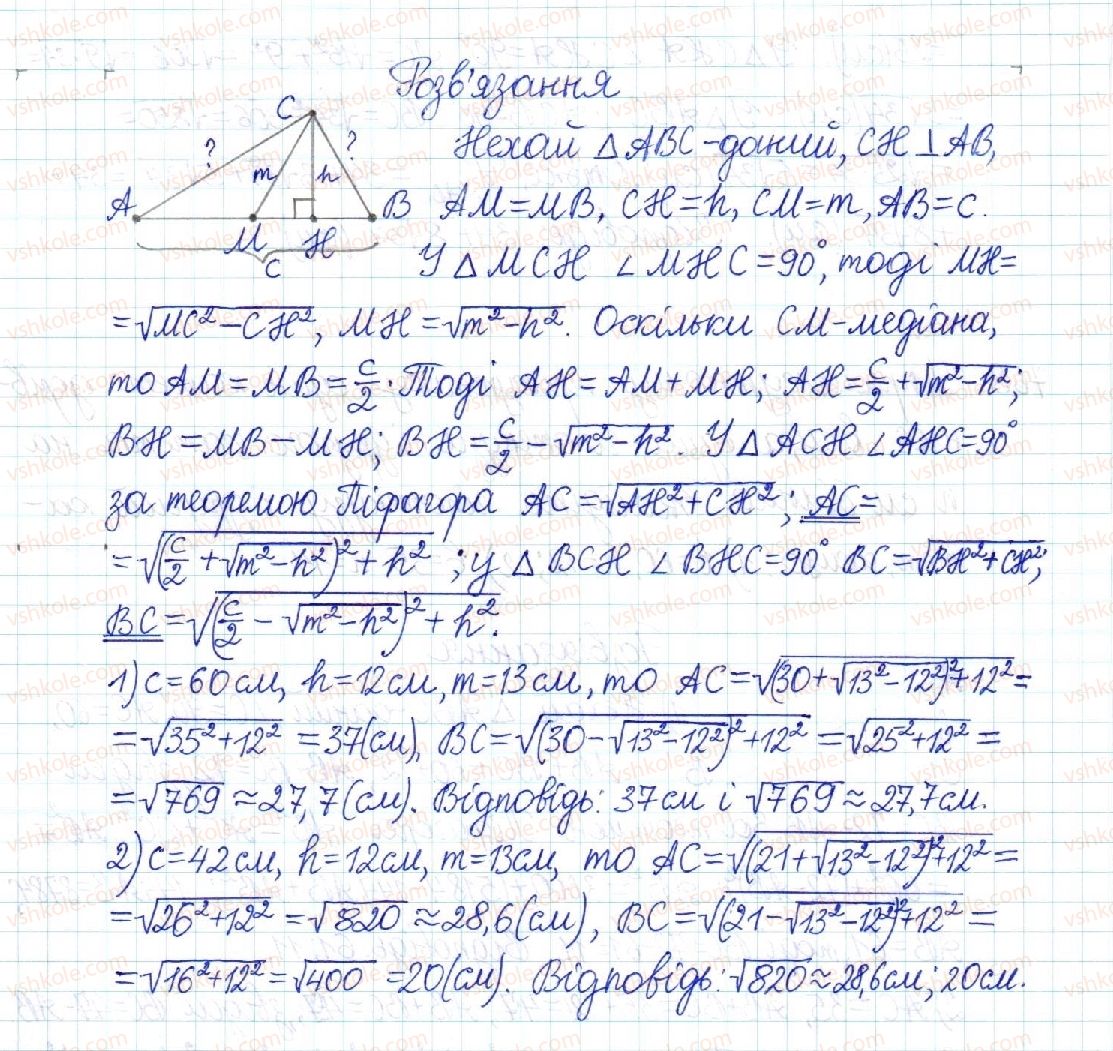 Розв'язання
C
? ?
m h
A B
M H
c
Нехай △ABC-даний, CH⊥AB,
AM=MB, CH=h, CM=m, AB=c.
У △MCH ∠MHC=90°, тоді MH=
=√(MC²-CH²), MH=√(m²-h²). Оскільки CM-медіана,
то AM=MB=c/2. Тоді AH=AM+MH; AH=c/2+√(m²-h²);
BH=MB-MH; BH=c/2-√(m²-h²). У △ACH ∠AHC=90°
за теоремою Піфагора AC=√(AH²+CH²); AC=
=√((c/2+√(m²-h²))²+h²); у △BCH ∠BHC=90° BC=√(BH²+CH²);
BC=√((c/2-√(m²-h²))²+h²).
1) c=60см, h=12см, m=13см, то AC=√((30+√(13²-12²))²+12²)=
=√(35²+12²)=37(см), BC=√((30-√(13²-12²))²+12²)=√(25²+12²)=
=√769≈27,7(см). Відповідь: 37см і √769≈27,7см.
2) c=42см, h=12см, m=13см, то AC=√((21+√(13²-12²))²+12²)=
=√(26²+12²)=√820≈28,6(см), BC=√((21-√(13²-12²))²+12²)=
=√(16²+12²)=√400=20(см). Відповідь: √820≈28,6см; 20см.
vshkole.com